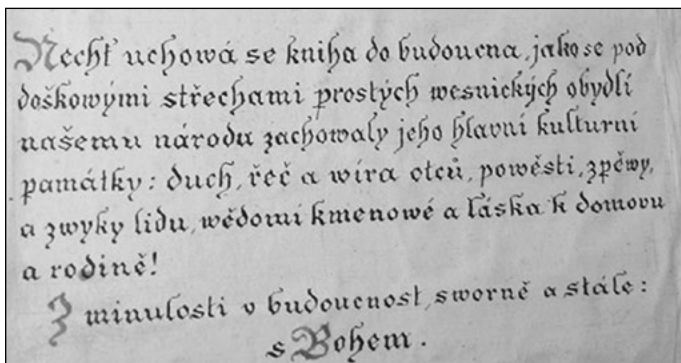 Nechť uchowá se kniha do budoucna, jako se pod
doškowými střechami prostých wesnických obydlí
našemu národu zachowaly jeho hlavní kulturní
památky: duch, řeč a wíra otců, powěsti, zpěwy,
a zwyky lidu, wědomí kmenowé a láska k domovu
a rodině!
Z minulosti v budoucnost, sworně a stále:
s Bohem.